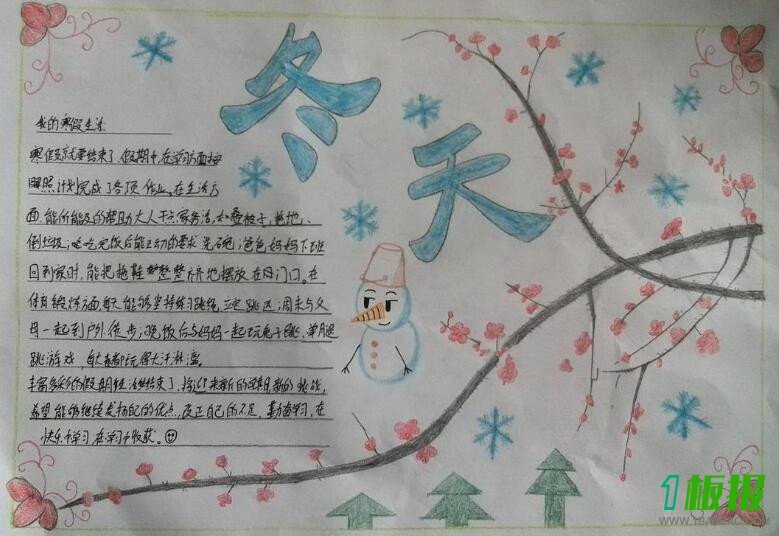 冬天
我的寒假生活
寒假就要结束了,假期中,在学习方面按
照计划完成了各项作业。在生活方
面,能所能及的帮助大人干家务活,如叠被子,拖地、
倒垃圾,吃完饭后能主动的要求洗碗;爸爸妈妈下班
回到家时,能把拖鞋整整齐齐地摆放在门口。在
体育锻炼方面,每天能够坚持练习跳绳,立定跳远;周末与父
母一起到户外徒步,晚饭后与妈妈一起玩兔子跳,单脚
跳游戏,每天都玩得大汗淋漓。
丰富多彩的假期生活结束了,将迎来新的学期,新的挑战,
希望能够继续发扬自己的优点,改正自己的不足,勤奋学习,在
快乐中学习在学习中收获。
1板报
WWW.1BANBAO.COM